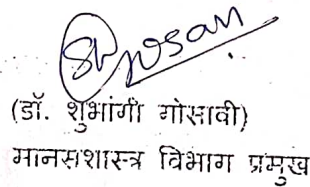 (डॉ. शुभांगी गोसावी)
मानसशास्त्र विभाग प्रमुख